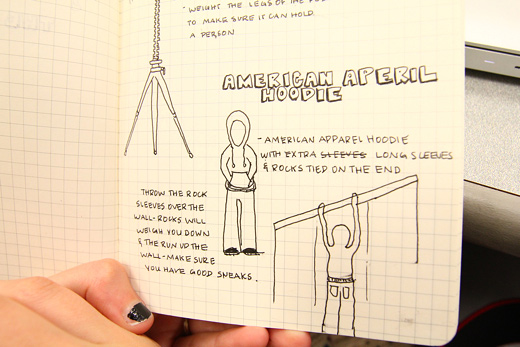 - WEIGHT THE LEGS OF THE
TO MAKE SURE IT CAN HOLD
A PERSON
AMERICAN APERIL
HOODIE
- AMERICAN APPAREL HOODIE
WITH EXTRA SLEEVES LONG SLEEVES
& ROCKS TIED ON THE END
THROW THE ROCK
SLEEVES OVER THE
WALL - ROCKS WILL
WEIGH YOU DOWN
& THE RUN UP THE
WALL - MAKE SURE
YOU HAVE GOOD SNEAKS.